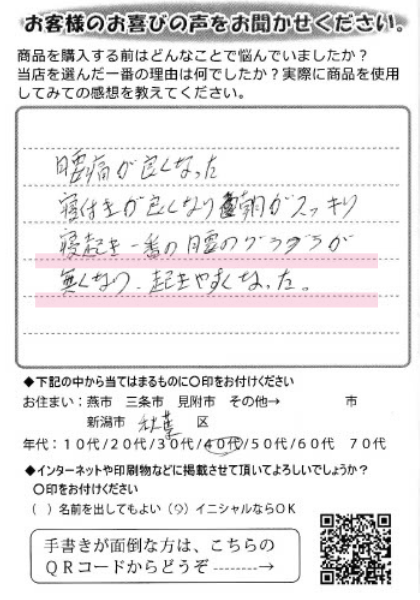 お客様のお喜びの声をお聞かせください。
商品を購入する前はどんなことで悩んでいましたか？
当店を選んだ一番の理由は何でしたか？実際に商品を使用
してみての感想を教えてください。
腰痛が良くなった
寝付きが良くなり朝がスッキリ
寝起き一番の腰のグラグラが
無くなり、起きやすくなった。
◆下記の中から当てはまるものに〇印をお付けください
お住まい：燕市 三条市 見附市 その他→ 市
新潟市 秋葉 区
年代：１０代/２０代/３０代/４０代/５０代/６０代 ７０代
◆インターネットや印刷物などに掲載させて頂いてよろしいでしょうか？
〇印をお付けください
（ ）名前を出してもよい（〇）イニシャルならＯＫ
手書きが面倒な方は、こちらの
ＱＲコードからどうぞ--------→